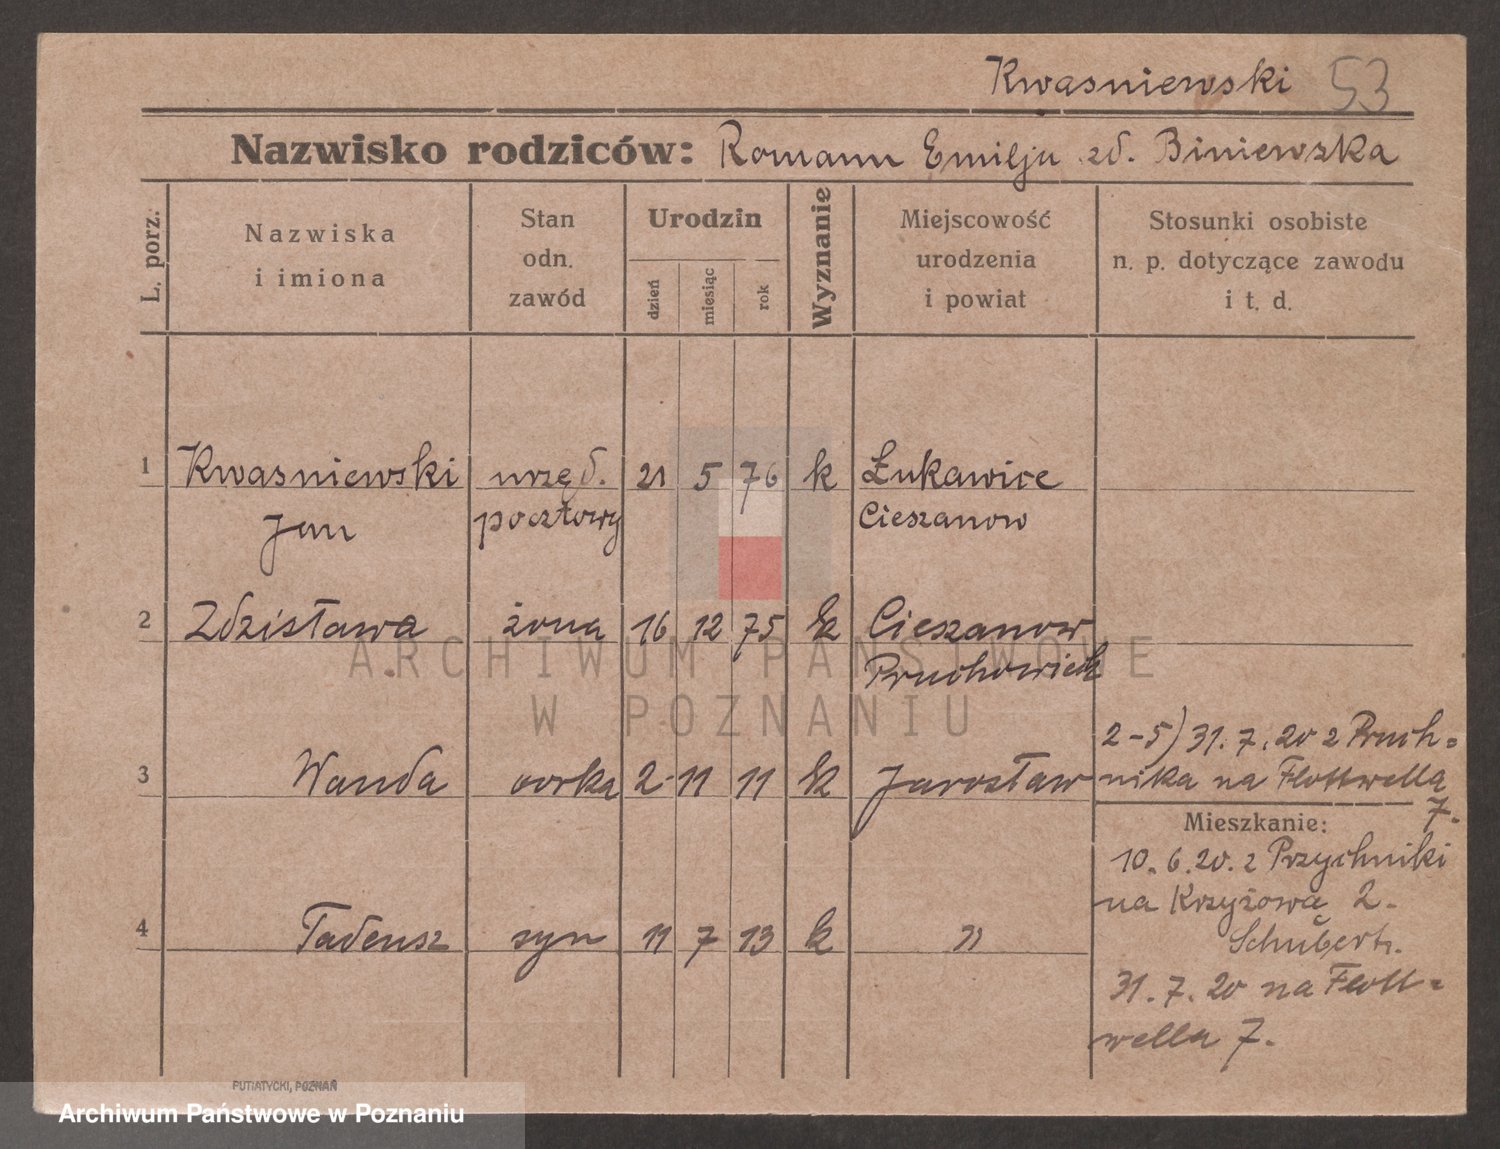 Kwasniewski 53
Nazwisko rodziców: Romann Emilju zd. Biniewska
L. porz.
Nazwiska
i imiona
Stan
odn.
zawód
Urodzin
dzień
miesiąc
rok
Wyznanie
Miejscowość
urodzenia
i powiat
Stosunki osobiste
n. p. dotyczące zawodu
i t. d.
1 Kwasniewski urzęd. 21 5 76 k Łukawice
Jan pocztowy Cieszanow
2 Zdzisława żona 16 12 75 k Cieszanow
2-5) 31. 7. 20 z Pruch=
3 Wanda corka 2 11 11 k Jarosław nika na Flottwella
7.
Mieszkanie:
10. 6. 20. z Przychniki
na Krzyżowa 2.
4 Tadeusz syn 11 7 13 k " Schubert.
31. 7. 20 na Flott=
wella 7.
PUTIATYCKI, POZNAŃ
ARCHIWUM PAŃSTWOWE
W POZNANIU
Archiwum Państwowe w Poznaniu